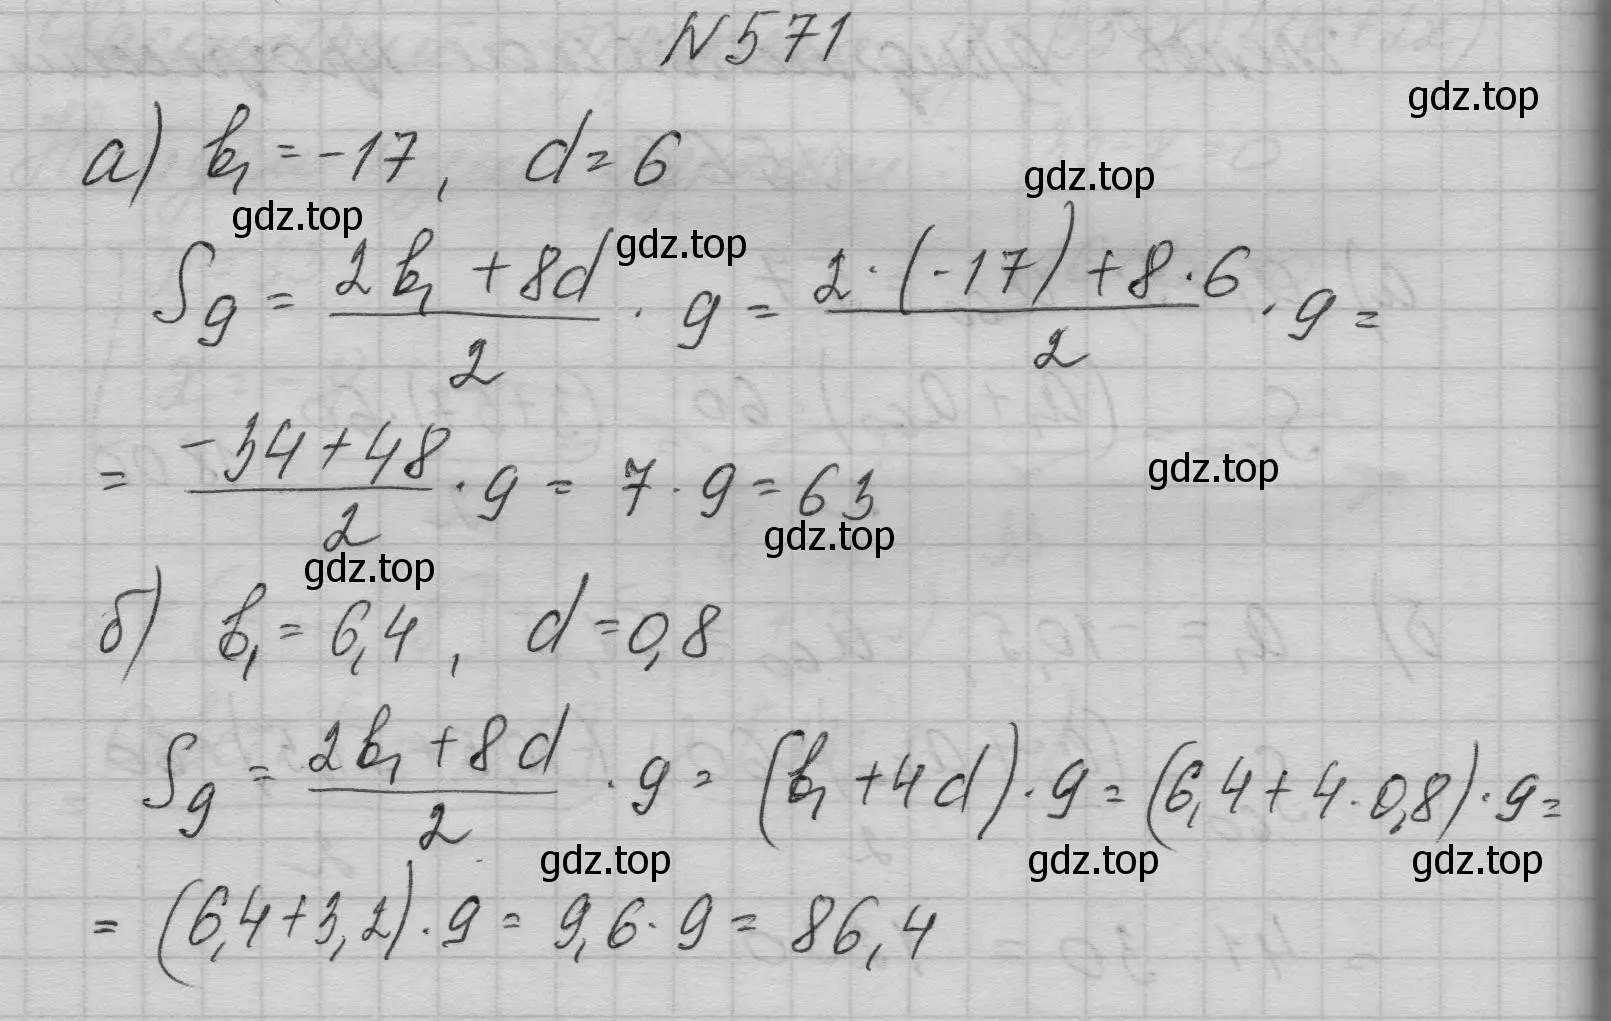 N 571
gdz.top
а) b₁ = -17, d = 6
gdz.top
gdz.top
gdz.top
S₉ = (2b₁ + 8d)/2 · 9 = (2 · (-17) + 8 · 6)/2 · 9 =
= (-34 + 48)/2 · 9 = 7 · 9 = 63
gdz.top
gdz.top
gdz.top
б) b₁ = 6,4, d = 0,8
S₉ = (2b₁ + 8d)/2 · 9 = (b₁ + 4d) · 9 = (6,4 + 4 · 0,8) · 9 =
gdz.top
gdz.top
gdz.top
= (6,4 + 3,2) · 9 = 9,6 · 9 = 86,4